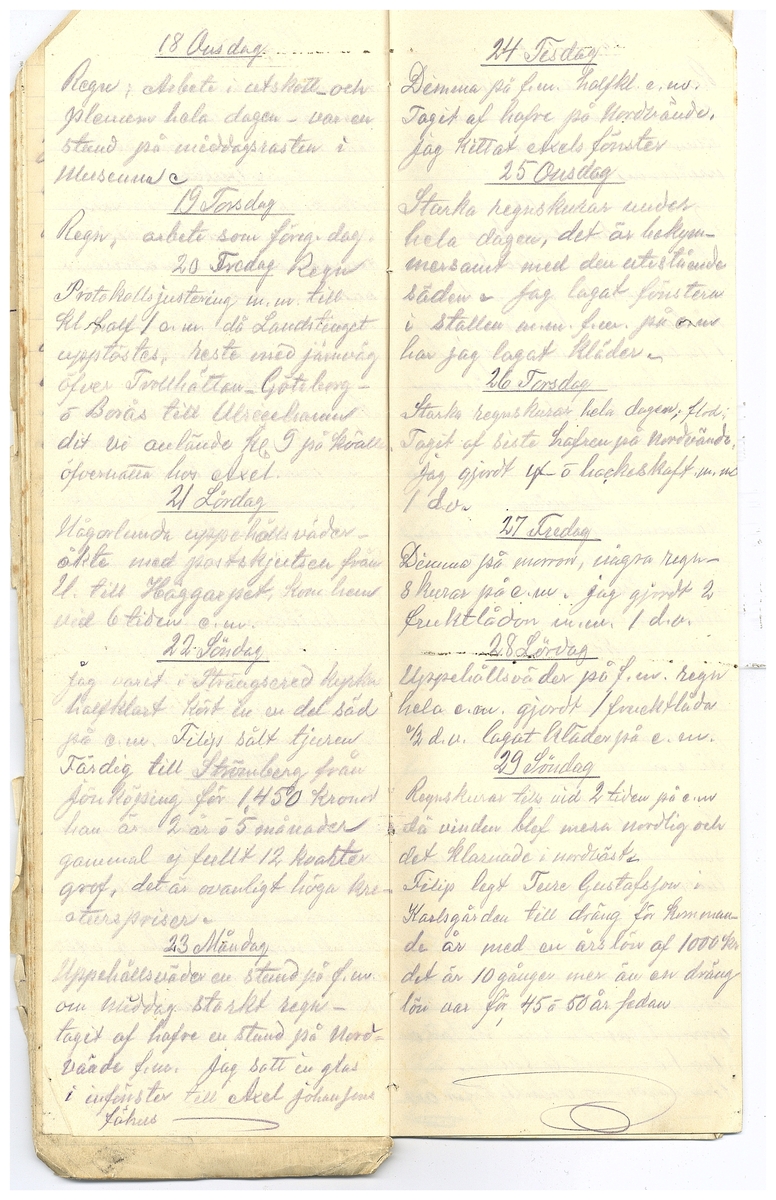 18 Onsdag.
Regn; Arbete i utskott- och
plenum hela dagen - var en
stund på middagsrasten i
Museum
19 Torsdag
Regn, arbete som föreg. dag.
20 Fredag Regn
Protokollsjustering m.m. till
kl half 1 e.m. då Landstinget
upplöstes, reste med järnväg
öfver Trollhättan - Göteborg -
o Borås till Ulricehamn
dit vi anlände kl 9 på kväll
öfvernatta hos Axel.
21 Lördag
Någorlunda uppehållsväder -
åkte med postskjutsen från
U. till Häggarpet, kom hem
vid 6 tiden e.m.
22 Söndag
Jag varit i Strängsered kyrka
halfklart kört in en del säd
på e.m. Filip sålt tjuren
Färdig till Strömberg från
Jönköping för 1,450 kronor
han är 2 år o 5 månader
gammal ej fullt 12 kvarter
grof, det är ovanligt höga kre-
aturspriser.
23 Måndag
Uppehållsväder en stund på f.m.
om middag starkt regn -
tagit af hafre en stund på Nord-
vände f.m. Jag satt in glas
i infönster till Axel Johansons
fähus
24 Tisdag
Dimma på f.m. halfkl. e.m.
Tagit af hafre på Nordvände.
Jag kittat Axels fönster
25 Onsdag
Starka regnskurar under
hela dagen, det är bekym-
mersamt med den utestående
säden. Jag lagat fönstern
i stallen m.m. f.m. på e.m
har jag lagat kläder.
26 Torsdag
Starka regnskurar hela dagen; flod;
Tagit af siste hafren på Nordvände.
Jag gjordt o hackeskaft m.m
1 d.v.
27 Fredag
Dimma på morron, några regn-
skurar på e.m. Jag gjordt 2
fruktlådor m.m. 1 d.v.
28 Lördag
Uppehållsväder på f.m. regn
hela e.m. gjordt 1 fruktlåda
1/2 d.v. lagat kläder på e.m.
29 Söndag
Regnskurar tills vid 2 tiden på e.m
då vinden blef mera nordlig och
det klarnade i nordväst.
Filip legt Ture Gustafsson i
Karlsgården till dräng för komman-
de år med en årslön af 1000 Kr
det är 10 gånger mer än en dräng
lön var för 45 à 50 år sedan